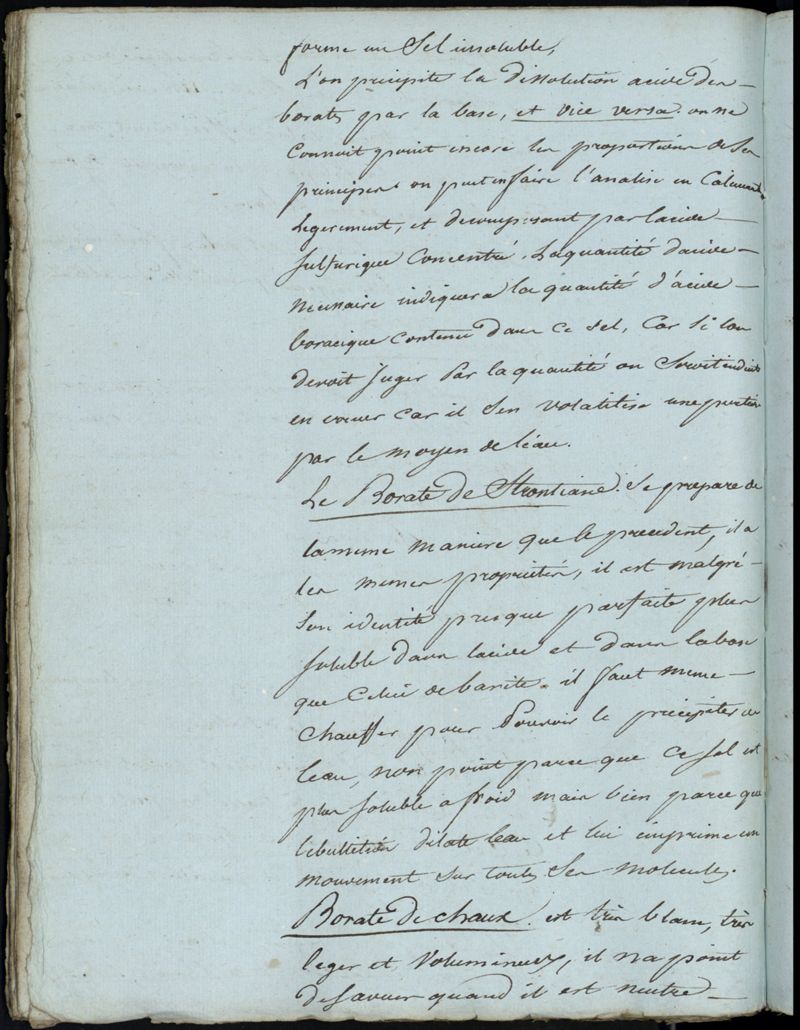 forme un Sel insoluble,
L'on precipite la dissolution acide des
borates par la base, et vice versa. on ne
connoit point encore les proportions de ses
principes. on peut en faire l'analise en Calcinant
Legerement, et decomposant par lacide
sulfurique Concentré. La quantité dacide
necessaire indiquera la quantité d'acide
boracique contenu dans ce sel, Car Si lon
devoit Juger Par la quantité on Seroit induit
en erreur car il Sen volatilise une partie
par le moyen de l'eau.
Le Borate de Strontiane. Se prepare de
la meme maniere que le precedent, il a
les memes proprietés, il est malgré
Son identité presque parfaite plus
soluble dans lacide et dans la base
que Celui de barite. il faut meme
chauffer pour Pouvoir le precipiter de
leau, non point parce que Ce Sel est
plus soluble a froid mais bien parce que
lebullition dilate leau et lui imprime un
mouvement sur toutes Ses molecules.
Borate de chaux. est très blanc, très
leger et Volumineux, il na point
de Saveur quand il est neutre